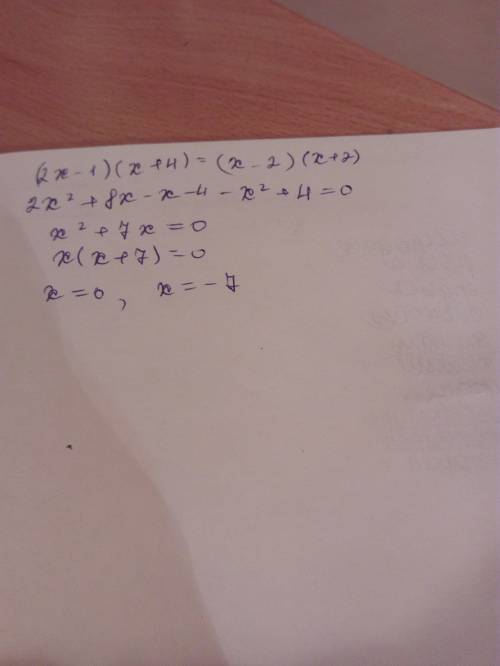 (2x-1)(x+4)=(x-2)(x+2)
2x²+8x-x-4-x²+4=0
x²+7x=0
x(x+7)=0
x=0, x=-7